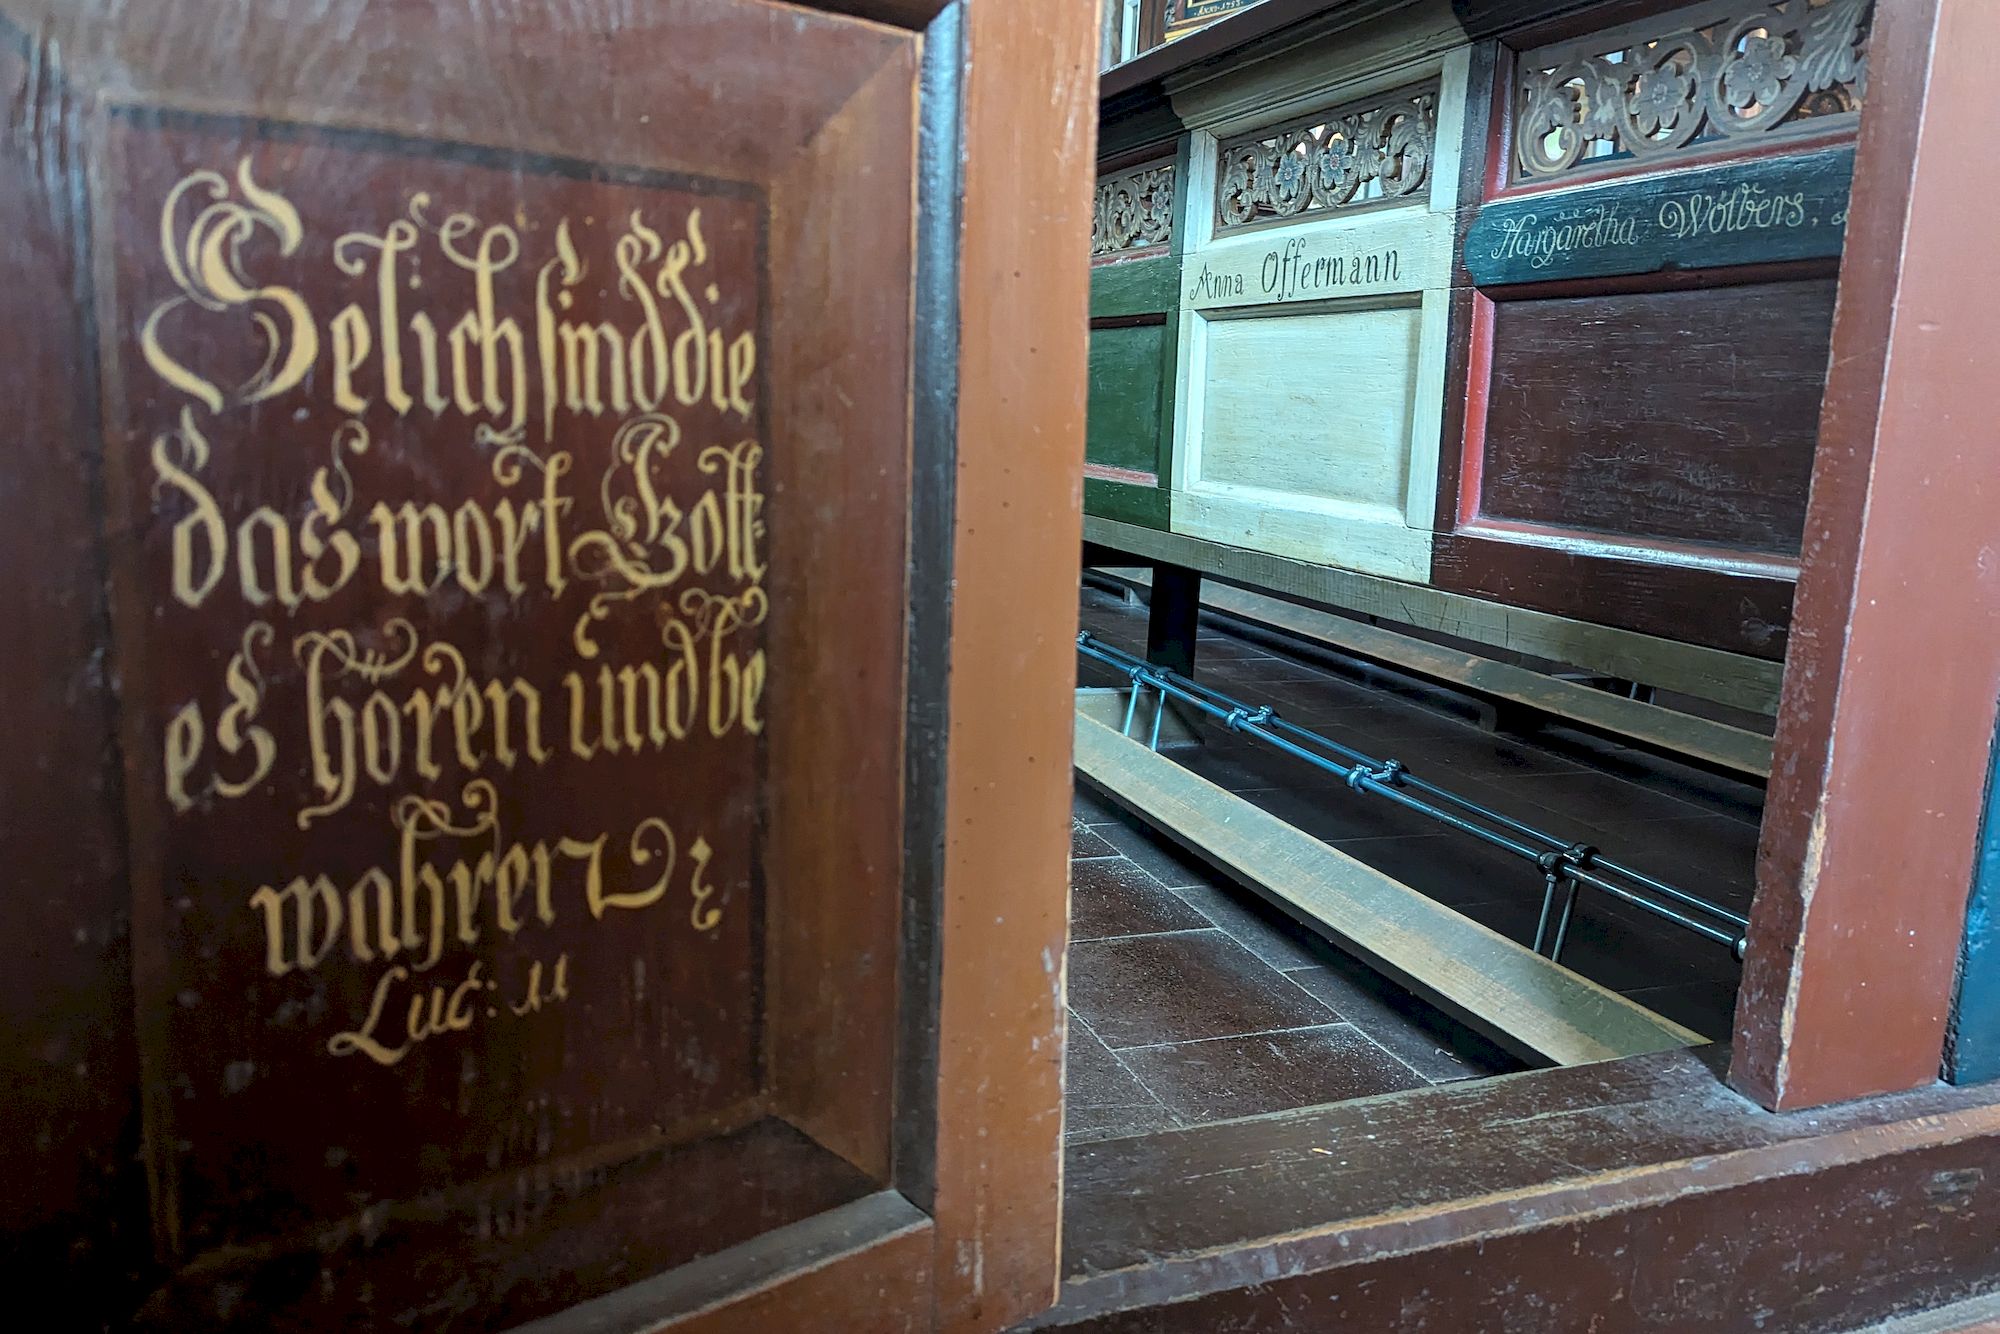 Selich sind die
das wort Gott⸗
es hören und be
wahren
Luc: 11
Anna Offermann
Margaretha Wölbers,
ANNO 1793